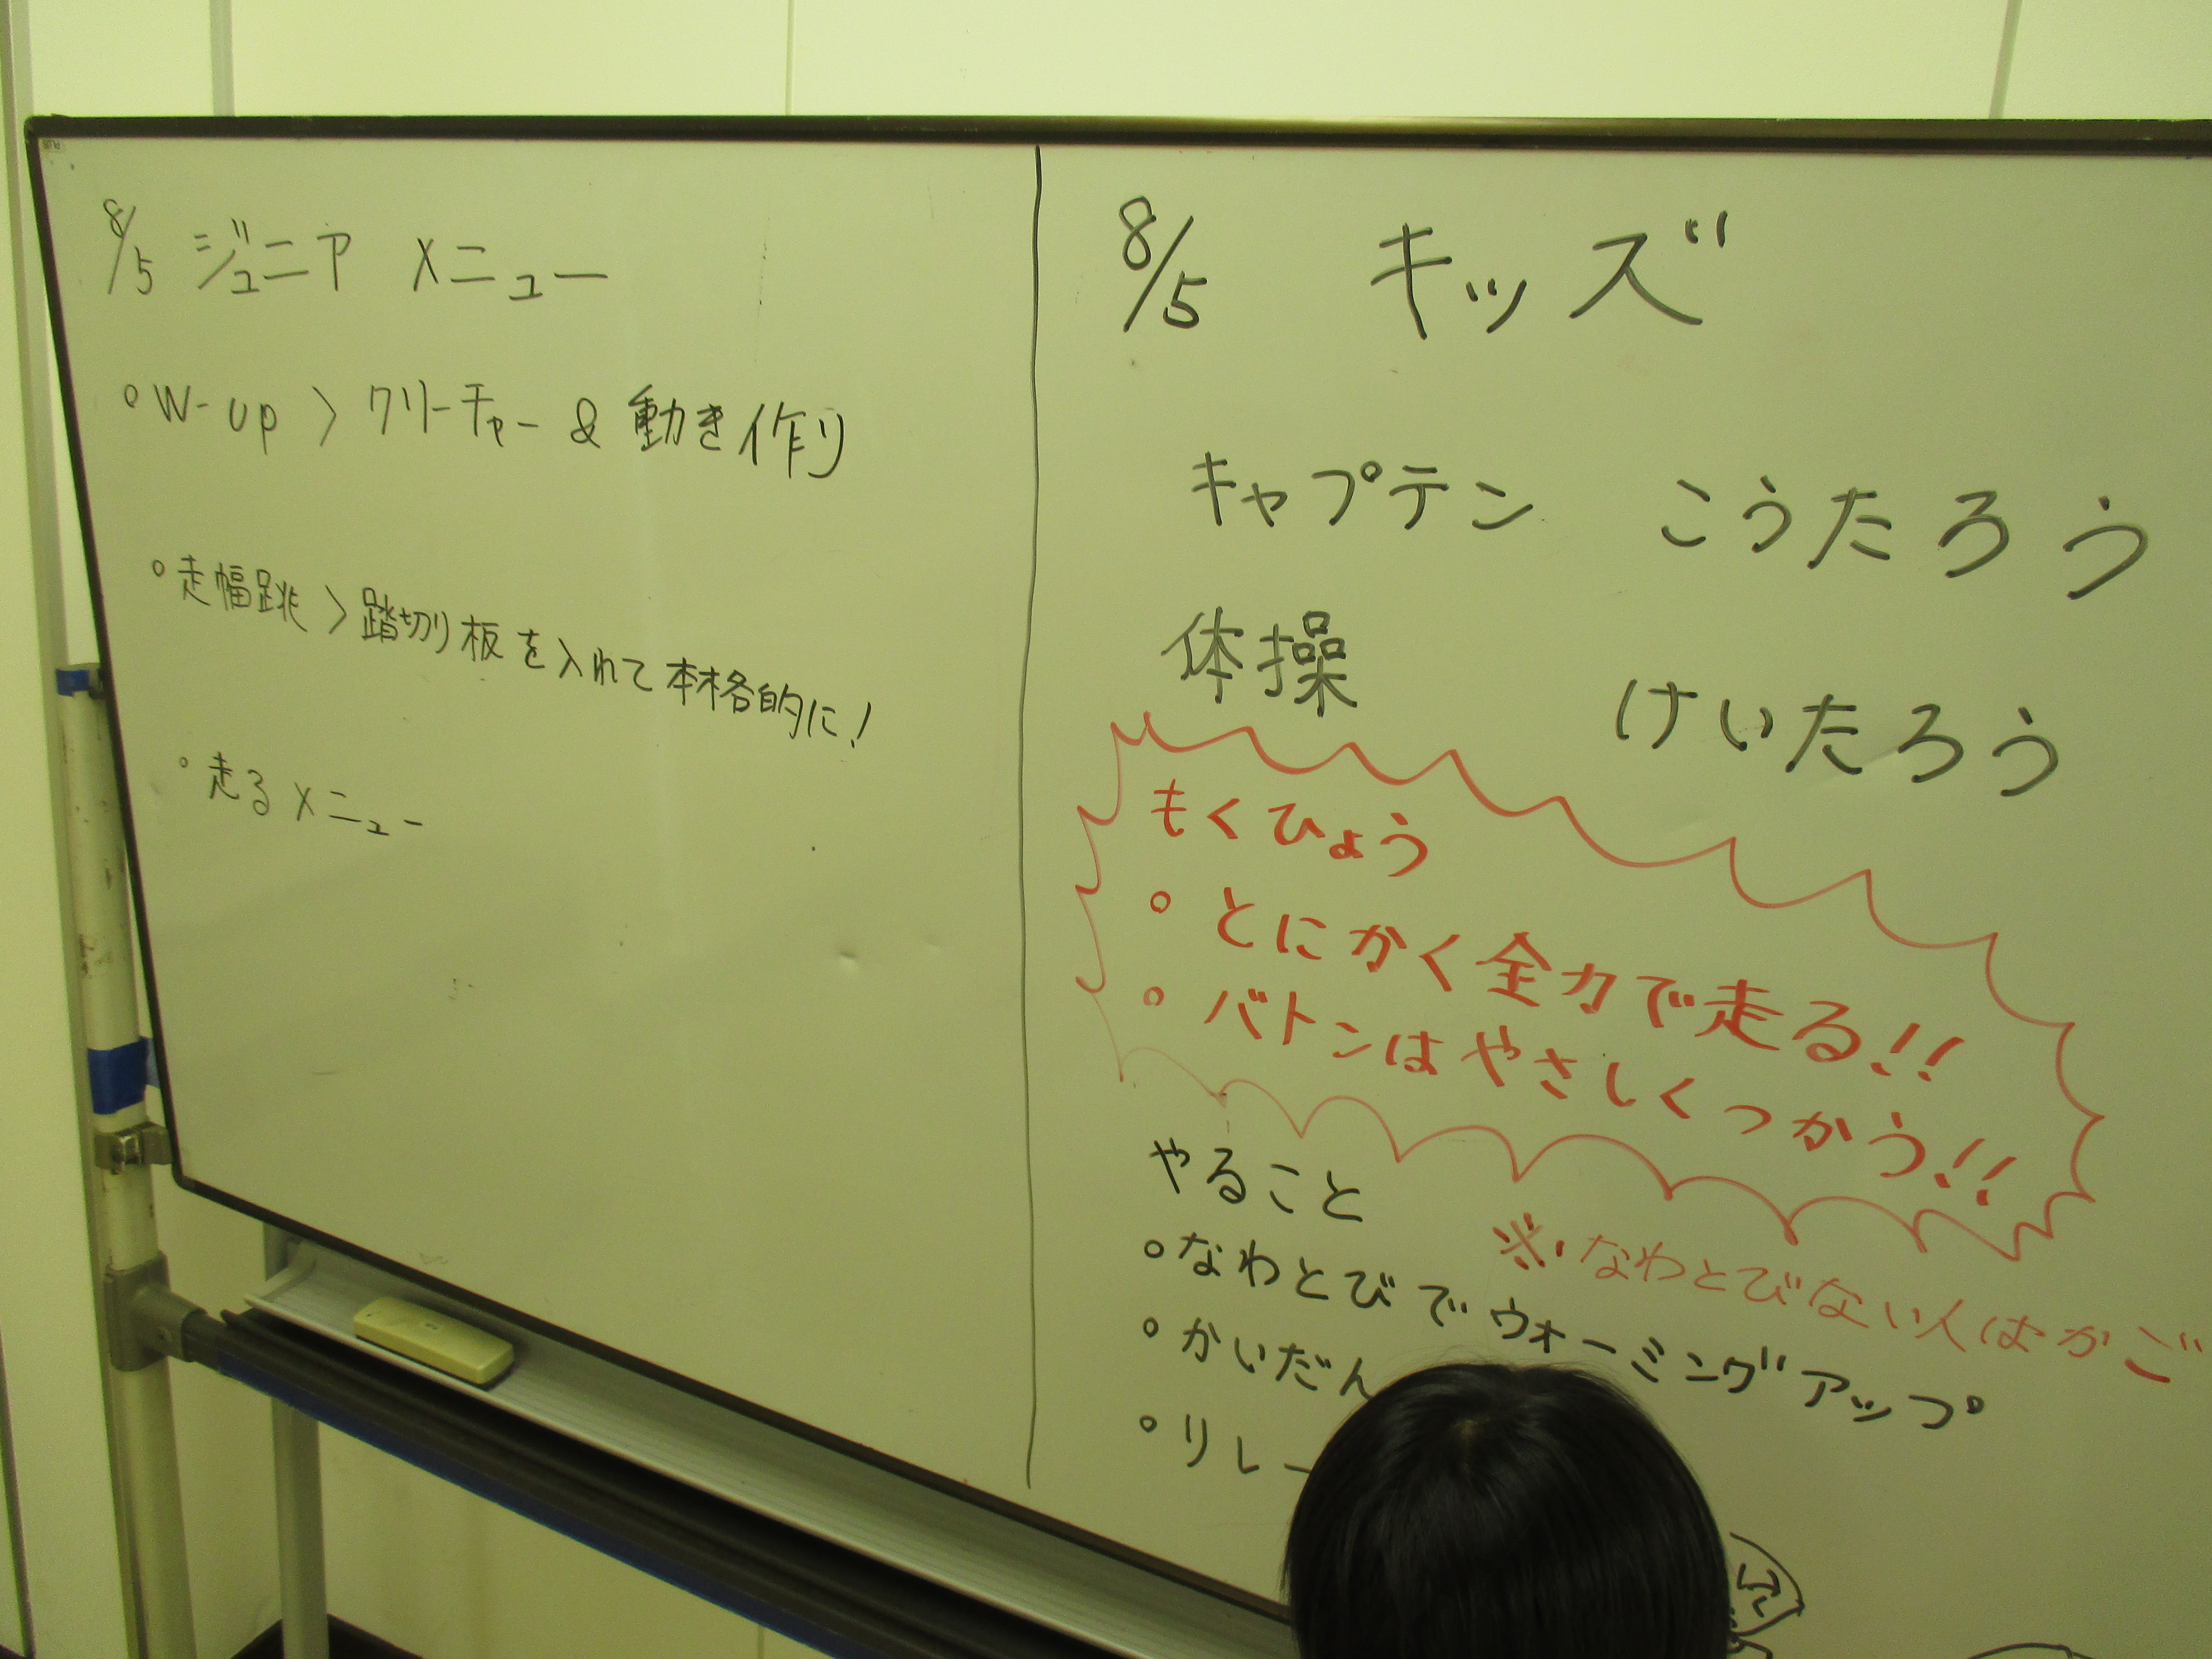 8/5 ジュニア メニュー
○ W-up > クリーチャー & 動き作り
○ 走幅跳 > 踏切り板を入れて本格的に!
○ 走るメニュー
8/5 キッズ
キャプテン こうたろう
体操 けいたろう
もくひょう
○ とにかく全力で走る!!
○ バトンはやさしくつかう!!
やること
※なわとびない人はかご
○ なわとびでウォーミングアップ
○ かいだん
○ リレー